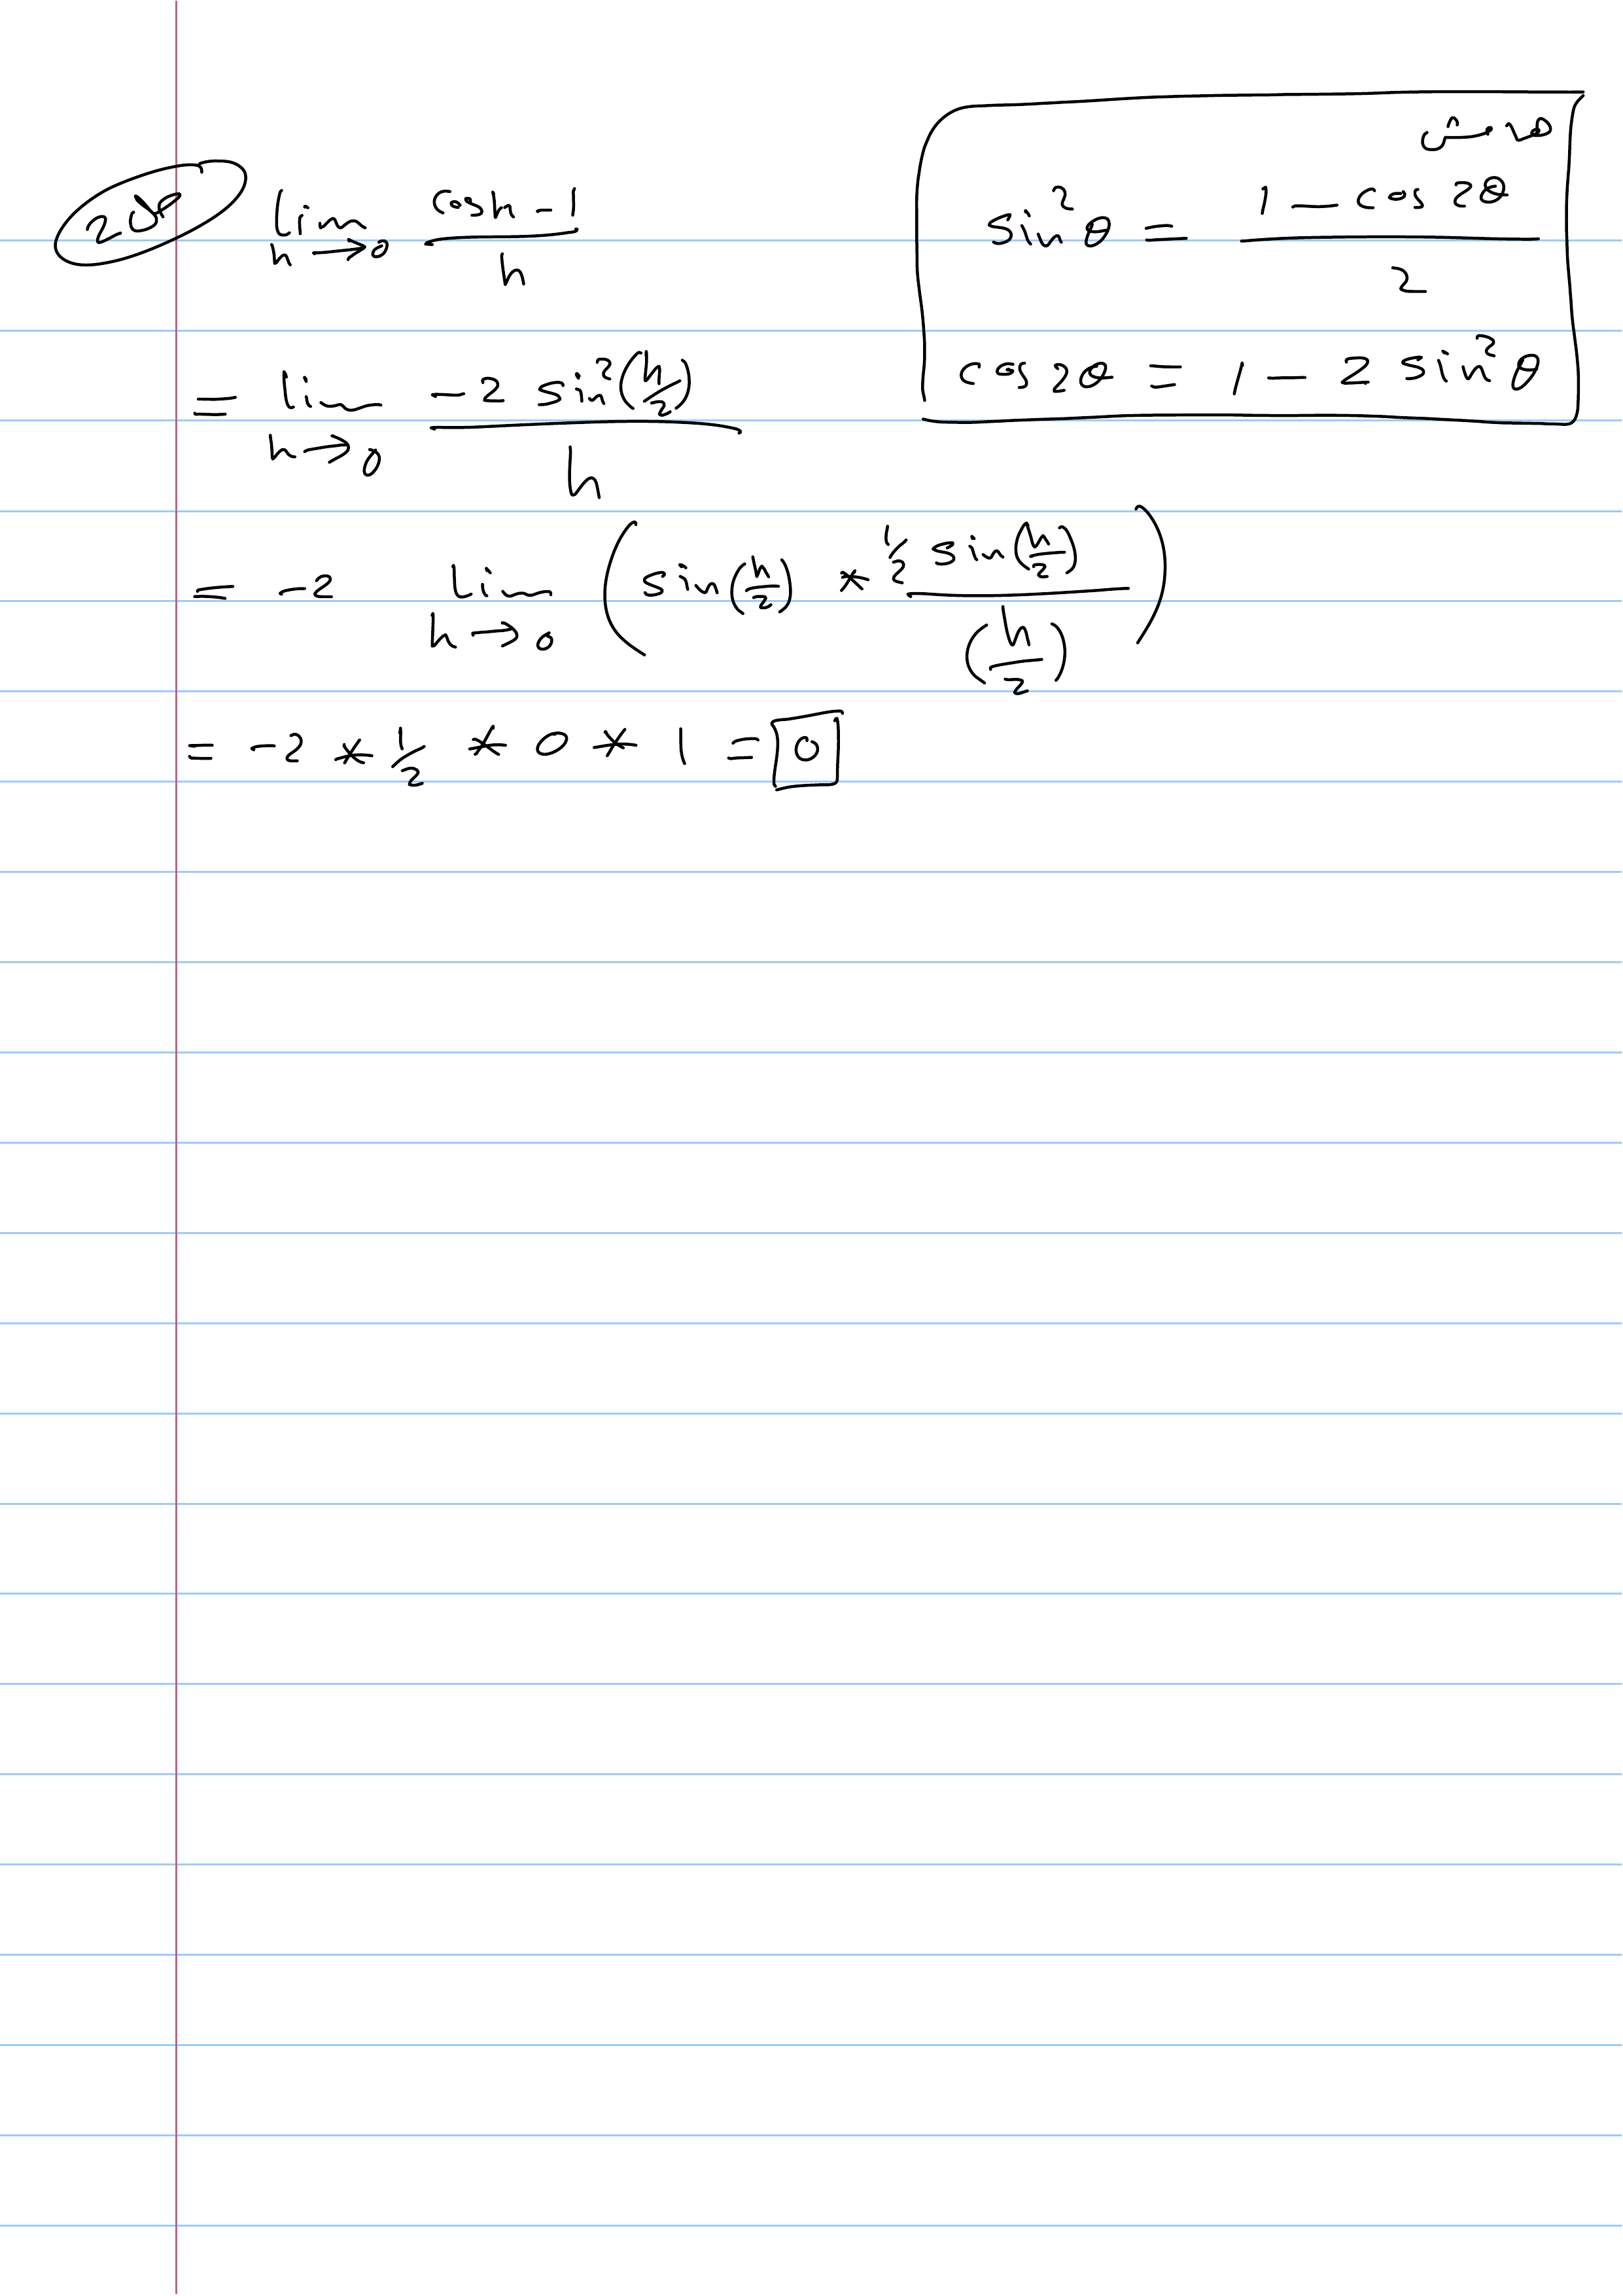 lim h→0 (cosh - 1)/h
= lim h→0 (-2 sin²(h/2))/h
= -2 lim h→0 (sin(h/2) * (½ sin(h/2))/(h/2))
= -2 * ½ * 0 * 1 = 0
sin²θ = (1 - cos 2θ)/2
cos 2θ = 1 - 2 sin²θ